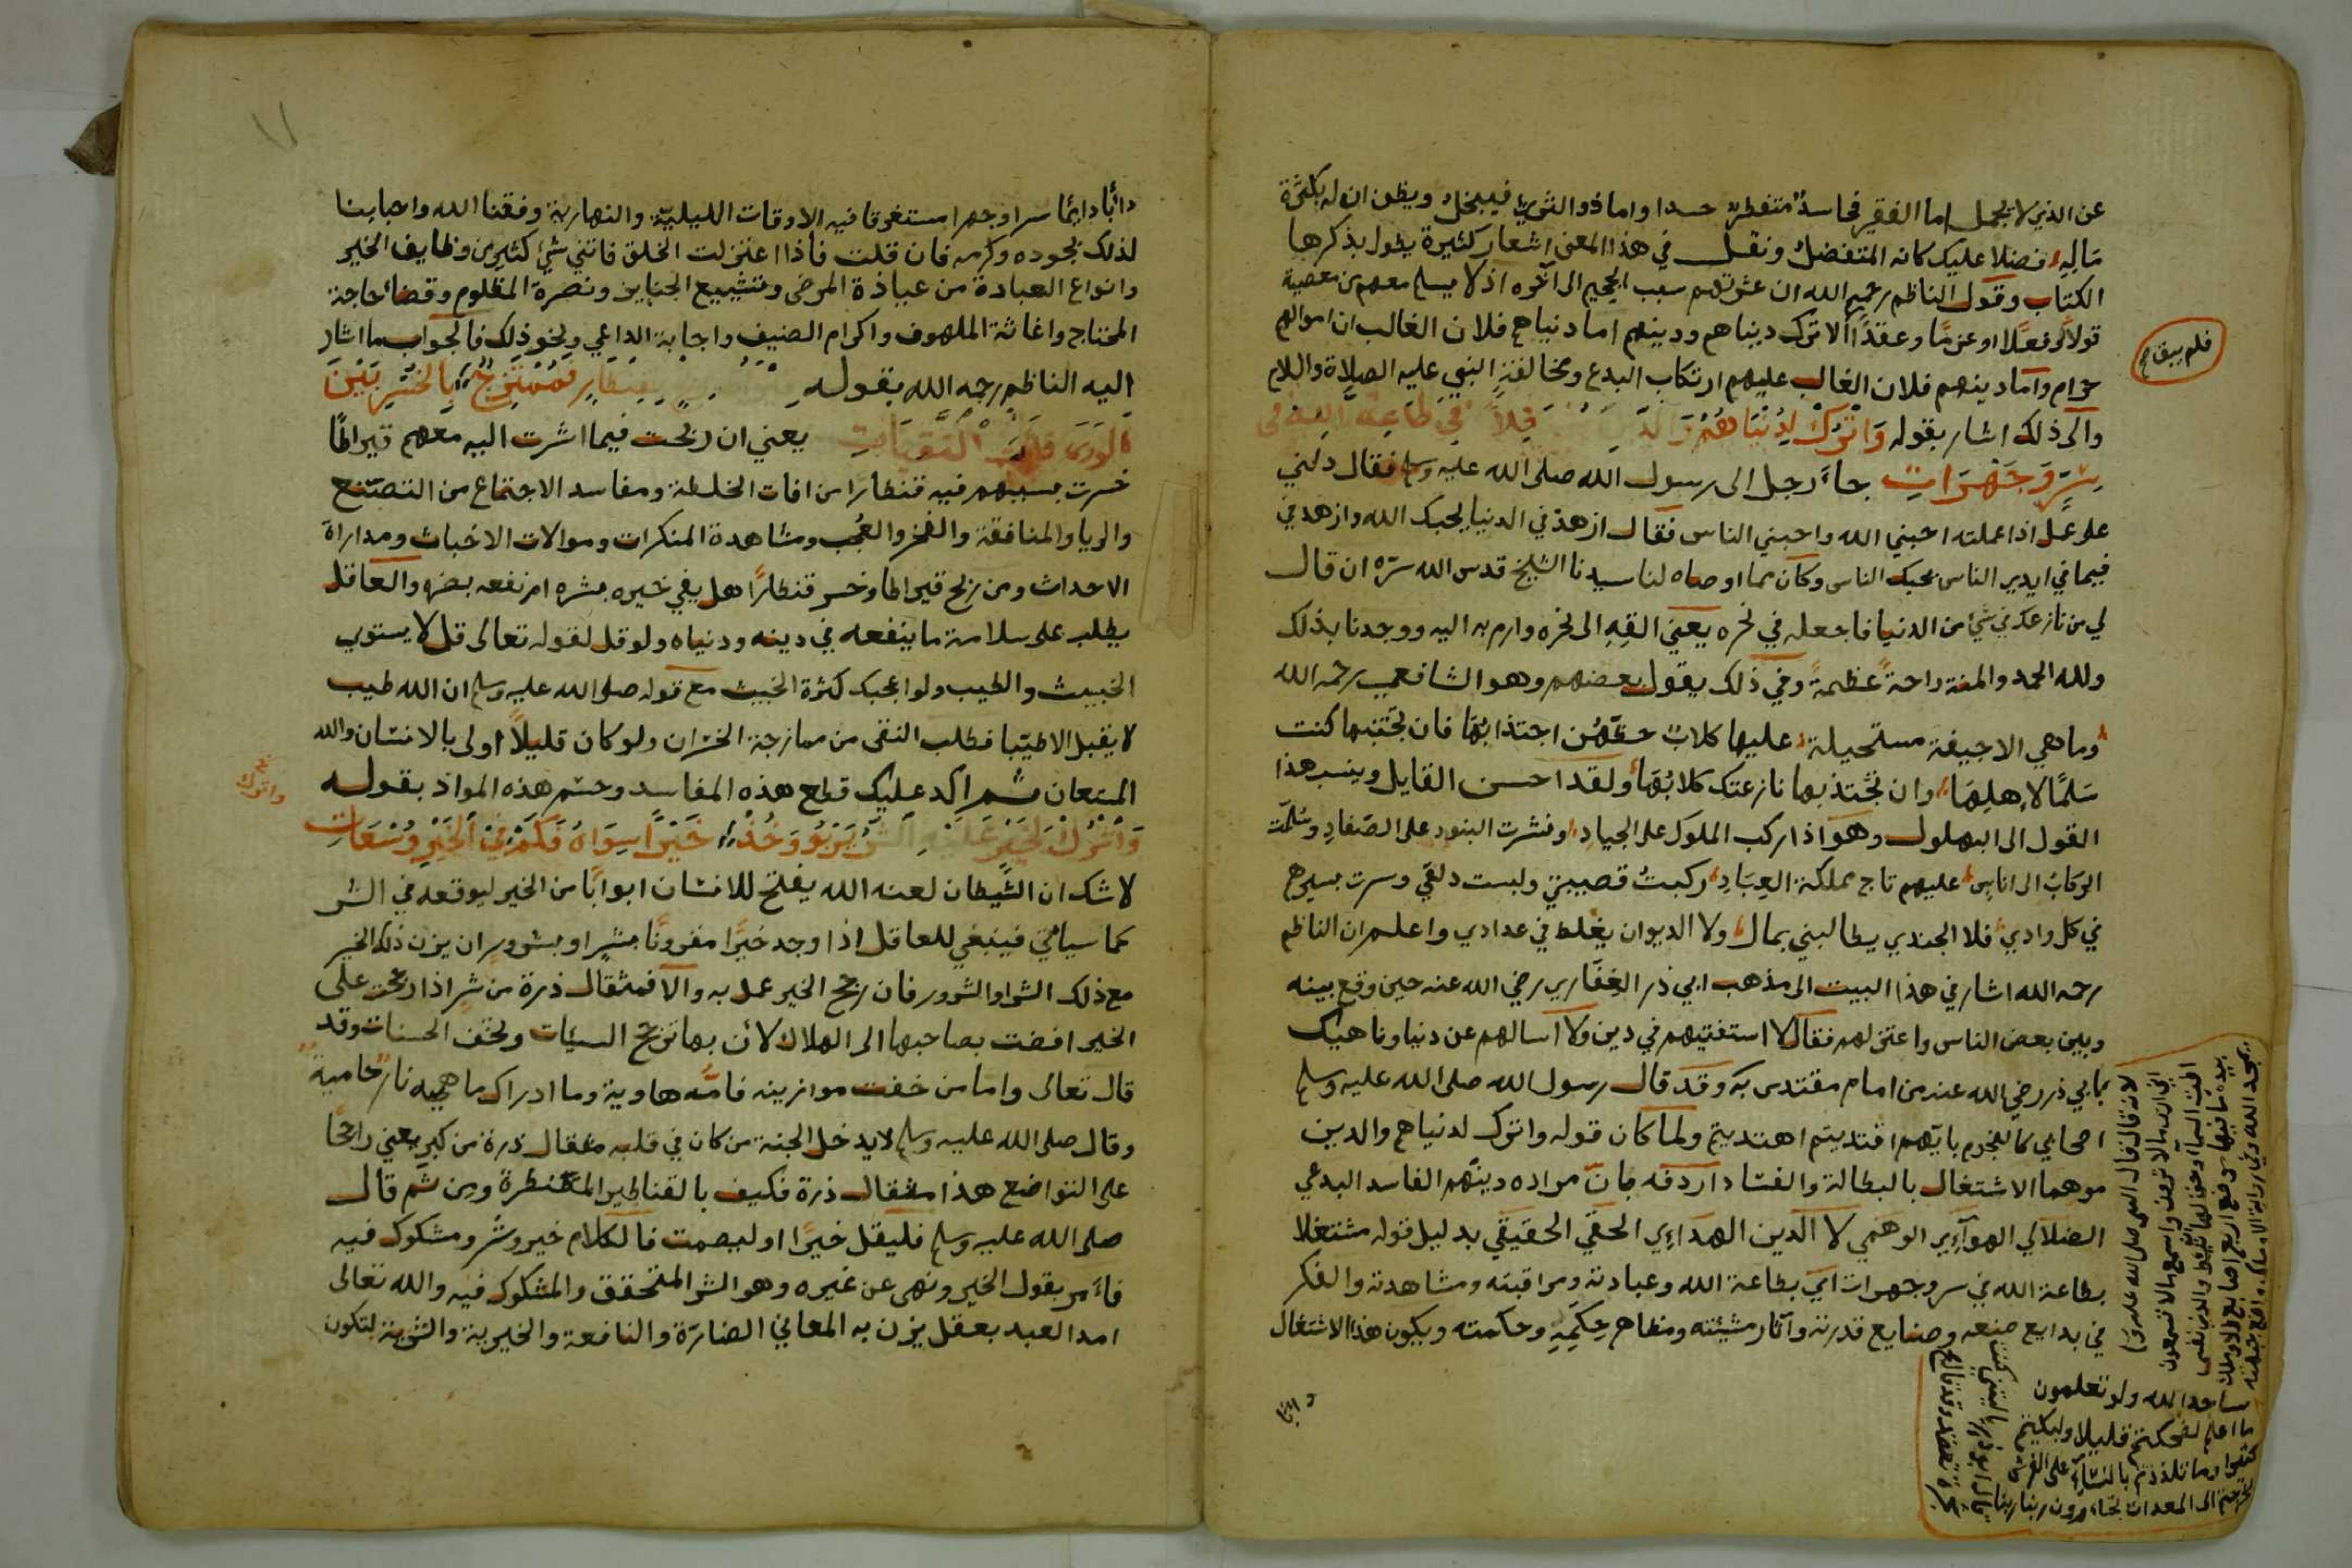 عن الذي لا يحمل اما الفقير فحاسد متفطر حسدا واما ذو الثورة فيبخل ويظن ان له بكثرة
ماله فضلا عليك كانه المتفضل ونقل في هذا المعنى اشعار كثيرة يطول بذكرها
الكتاب وقول الناظم رحمه الله ان عشرتهم سبب الجحيم الى آخره اذ لا يسلم معهم من معصية
قولا او فعلا او عزما وعقدا الا ترك دنياهم ودينهم اما دنياهم فلان الغالب ان اموالهم
حرام واما دينهم فلان الغالب عليهم ارتكاب البدع ومخالفة النبي عليه الصلاة والسلام
والى ذلك اشار بقوله وَاتْرُكْ لِدُنْيَاهُمْ في طاعة الله في
سِرٍّ وَجَهْرَاتِ جاء رجل الى رسول الله صلى الله عليه وسلم فقال دلني
على عمل اذا عملته احبني الله واحبني الناس فقال ازهد في الدنيا يحبك الله وازهد في
فيما في ايدي الناس يحبك الناس وكان مما اوصاه لنا سيدنا الشيخ قدس الله سره ان قال
لي من نازعك في شيء من الدنيا فاجعله في نحره يعني القه الى نحره وارم به اليه ووجدنا بذلك
ولله الحمد والمنة راحة عظيمة وفي ذلك يقول بعضهم وهو الشافعي رحمه الله
وما هي الا جيفة مستحيلة عليها كلاب همهن اجتذابها فان تجتنبها كنت
سلما لاهلها وان تجتذبها نازعتك كلابها ولقد احسن القايل وينسب هذا
القول الى البهلول وهو اذا ركب الملوك على الجياد ونشرت البنود على الصعاد وسلمت
الركاب الى اناس عليهم تاج مملكة العباد ركبت قصيبتي ولبست دلقي وسرت بسيرهم
في كل وادي فلا الجندي يطالبني بمال ولا الديوان يغلط في عدادي واعلم ان الناظم
رحمه الله اشار في هذا البيت الى مذهب ابي ذر الغفاري رضي الله عنه حين وقع بينه
وبين بعض الناس واعتزلهم فقال لا استفتيهم في دين ولا اسالهم عن دنيا وناهيك
بابي ذر رضي الله عنه من امام مقتدى به وقد قال رسول الله صلى الله عليه وسلم
اصحابي كالنجوم بايهم اقتديتم اهتديتم ولما كان قوله واترك لدنياهم والدين
موهما الاشتغال بالبطالة والفساد اردفه بان مراده دينهم الفاسد البدعي
الضلالي الهوآءي الوهمي لا الدين الهداءي الحقي الحقيقي بدليل قوله مشتغلا
بطاعة الله في سر وجهرات اي بطاعة الله وعبادته ومراقبته ومشاهدته والفكر
في بدايع صنعه وصنايع قدرته وآثار مشيئته ومظاهر حكمه وحكمته ويكون هذا الاشتغال
دائبا
فلم يبق
لانه قال قال النبي صلى الله عليه وسلم
اني ارى ما لا ترون واسمع ما لا تسمعون
اطت السماء وحق لها ان تئط والذي نفسي
بيده ما فيها موضع اربع اصابع الا وملك
ساجدا لله ولو تعلمون
ما اعلم لضحكتم قليلا ولبكيتم
كثيرا وما تلذذتم بالنساء على الفرش
لخرجتم الى الصعدات تجأرون ربنا ربنا
قال ابو ذر يا ليتني كنت
شجرة تعضد
١١
دائبا دايما سرا وجهرا مستغرقا فيه الاوقات الليلية والنهارية وفقنا الله واحبابنا
لذلك بجوده وكرمه فان قلت فاذا اعتزلت الخلق فاتني شيء كثير من وظايف الخير
وانواع العبادة من عيادة المرضى وتشييع الجنايز ونصرة المظلوم وقضاء حاجة
المحتاج واغاثة الملهوف واكرام الضيف واجابة الداعي ونحو ذلك فالجواب ما اشار
اليه الناظم رحمه الله بقوله بقنطار فممتزج بالخير بين
الورى يعني ان ربحت فيما اشرت اليه معهم قيراطا
خسرت بسببهم فيه قنطارا من افات الخلطة ومفاسد الاجتماع من التصنع
والريا والمنافقة والفخر والعجب ومشاهدة المنكرات وموالات الاخباث ومداراة
الاحداث ومن ربح قيراطا وخسر قنطارا هل يفي خيره بشره ام نفعه بضره والعاقل
يطلب على سلامة ما ينفعه في دينه ودنياه ولو قل لقوله تعالى قل لا يستوي
الخبيث والطيب ولو اعجبك كثرة الخبيث مع قوله صلى الله عليه وسلم ان الله طيب
لا يقبل الا طيبا فطلب النقى من ممازجة الخسران ولو كان قليلا اولى بالانسان والله
المستعان ثم اكد عليك قطع هذه المفاسد وحسم هذه المواد بقوله
وَاتْرُكْ لِخَيْرٍ عَلَيْهِ الشَّرُّ يَرْبُو وَخُذْ خَيْرًا سِوَاهُ فَكَمْ فِي الْخَيْرِ وُسْعَاتِ
لا شك ان الشيطان لعنه الله يفتح للانسان ابوابا من الخير ليوقعه في الشر
كما سياتي فينبغي للعاقل اذا وجد خيرا مقرونا بشر او بشرور ان يزن ذلك الخير
مع ذلك الشر او الشرور فان رجح الخير عمل به والا فمثقال ذرة من شر اذا رجحت على
الخير افضت بصاحبها الى الهلاك لأن بها ترجح السيئات وتخف الحسنات وقد
قال تعالى واما من خفت موازينه فامه هاوية وما ادراك ما هيه نار حامية
وقال صلى الله عليه وسلم لا يدخل الجنة من كان في قلبه مثقال ذرة من كبر يعني راجحا
على التواضع هذا مثقال ذرة فكيف بالقناطير المقنطرة ومن ثم قال
صلى الله عليه وسلم فليقل خيرا او ليصمت فالكلام خير وشر ومشكوك فيه
فأمر بقول الخير ونهى عن غيره وهو الشر المتحقق والمشكوك فيه والله تعالى
امد العبد بعقل يزن به المعاني الضارة والنافعة والخيرية والشرية لتكون
واترك